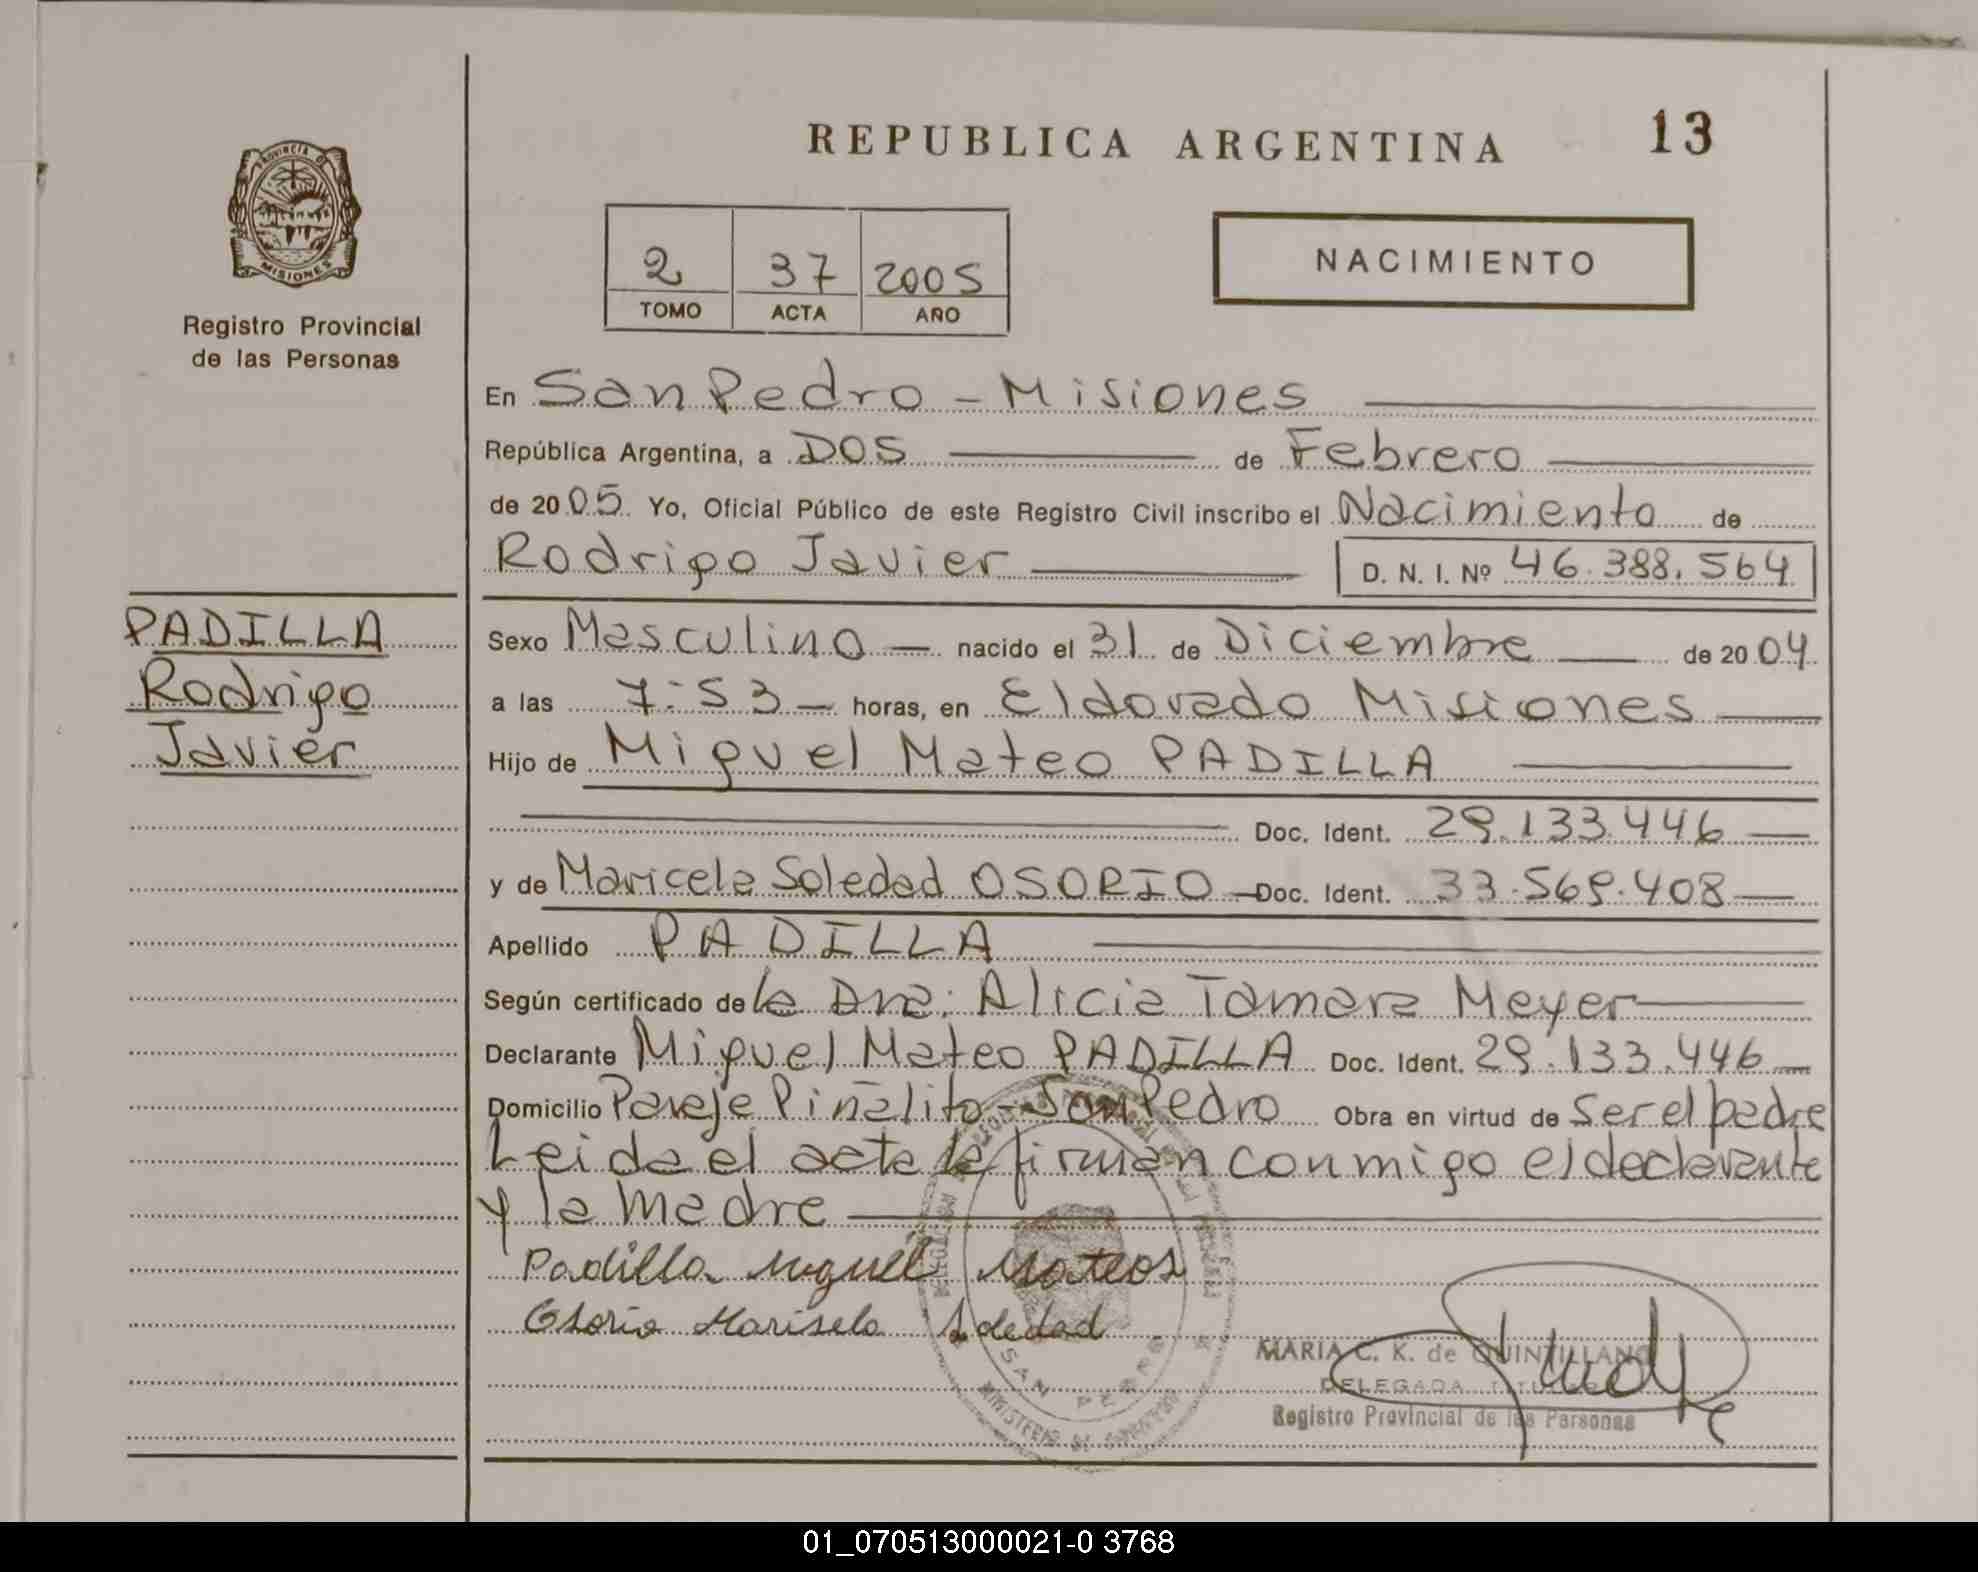 REPUBLICA ARGENTINA 13
PROVINCIA DE
MISIONES
Registro Provincial
de las Personas
2 37 2005
TOMO ACTA AÑO
NACIMIENTO
En San Pedro - Misiones
República Argentina, a DOS de Febrero
de 2005. Yo, Oficial Público de este Registro Civil inscribo el Nacimiento de
Rodrigo Javier D. N. I. Nº 46.388.564
PADILLA
Rodrigo
Javier
Sexo Masculino — nacido el 31 de Diciembre de 2004
a las 7:53 — horas, en Eldorado Misiones
Hijo de Miguel Mateo PADILLA
Doc. Ident. 29.133.446
y de Maricela Soledad OSORIO Doc. Ident. 33.569.408
Apellido PADILLA
Según certificado de la Dra: Alicia Tamara Meyer
Declarante Miguel Mateo PADILLA Doc. Ident. 29.133.446
Domicilio Paraje Piñalito - San Pedro Obra en virtud de Ser el padre
Leida el acta la firman conmigo el declarante
y la madre
Padilla Miguel Mateos
Osorio Marisela Soledad
MARIA C. K. de QUINTILLANO
DELEGADA TITULAR
Registro Provincial de las Personas
SAN PEDRO
01_070513000021-0 3768